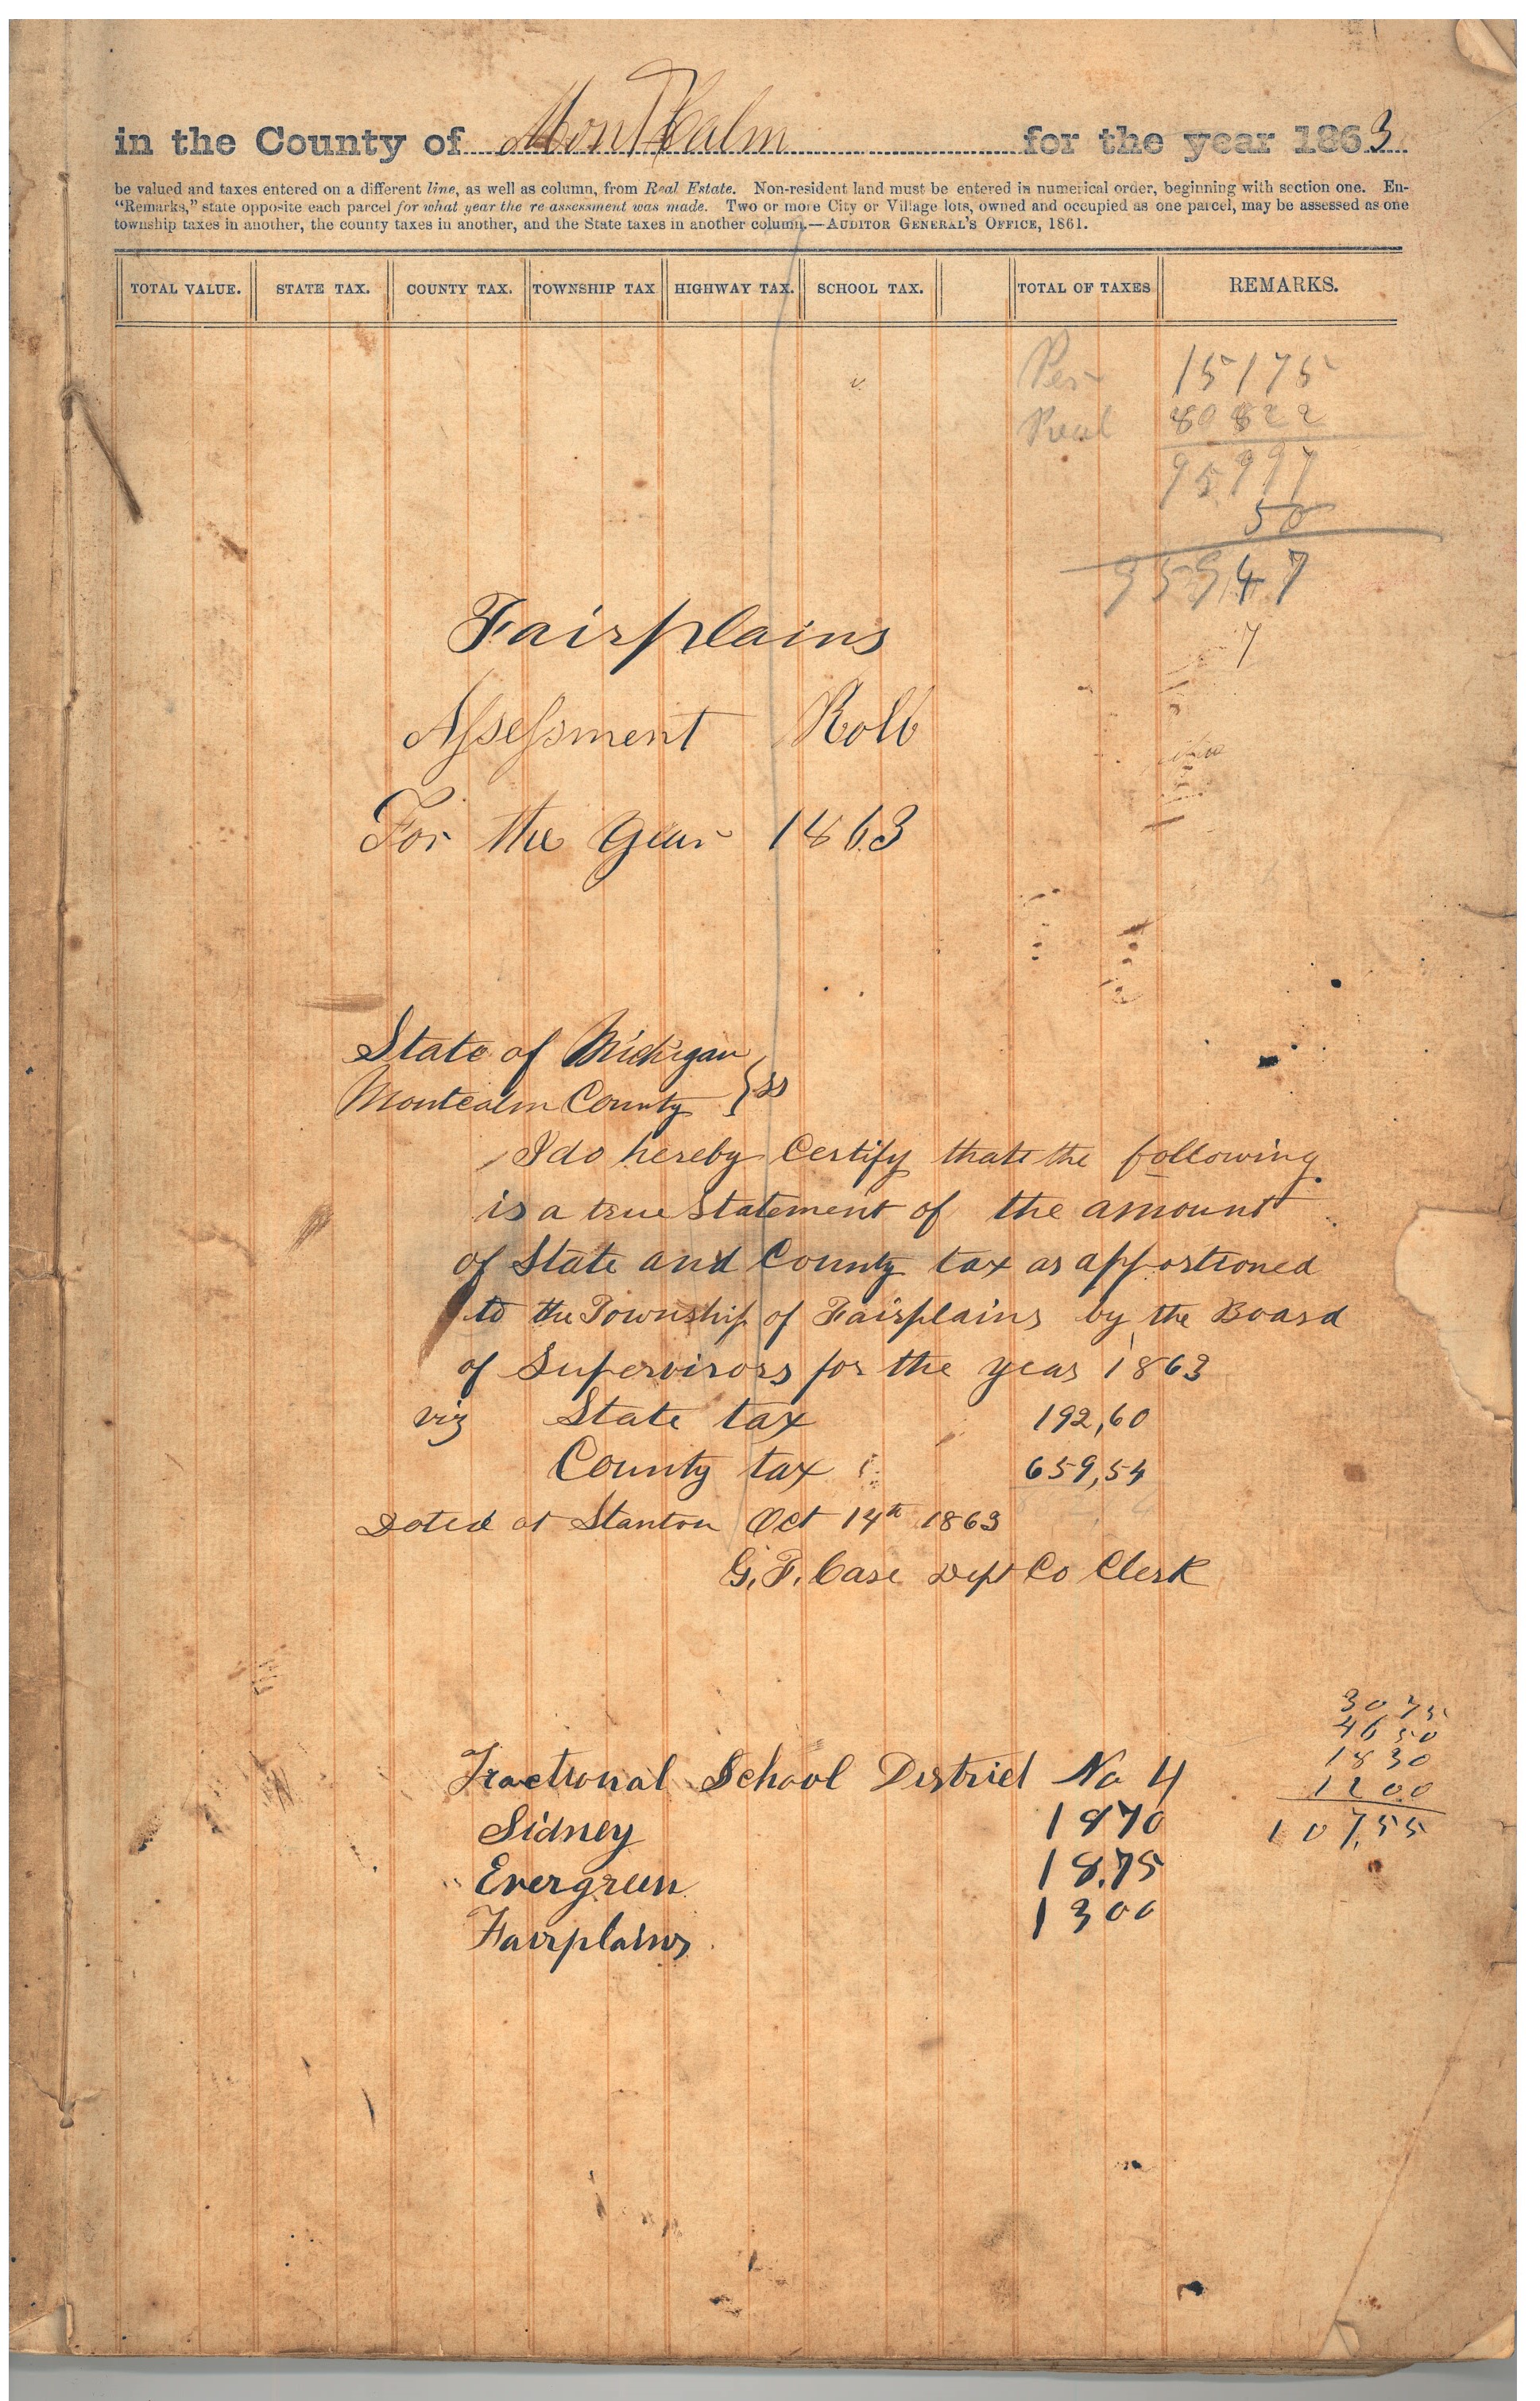 in the County of MontCalm for the year 1863
be valued and taxes entered on a different line, as well as column, from Real Estate. Non-resident land must be entered in numerical order, beginning with section one. En-
"Remarks," state opposite each parcel for what year the re assessment was made. Two or more City or Village lots, owned and occupied as one parcel, may be assessed as one
township taxes in another, the county taxes in another, and the State taxes in another column.—AUDITOR GENERAL'S OFFICE, 1861.
TOTAL VALUE. STATE TAX. COUNTY TAX. TOWNSHIP TAX HIGHWAY TAX. SCHOOL TAX. TOTAL OF TAXES REMARKS.
Per 15175
Real 80822
95997
50
95947
7
Fairplains
Assessment Roll
For the Year 1863
State of Michigan
Montcalm County } ss
I do hereby Certify that the following
is a true Statement of the amount
of State and County tax as apportioned
to the Township of Fairplains by the Board
of Supervisors for the year 1863
viz State tax 192,60
County tax 659,54
Dated at Stanton Oct 14th 1863
G. F. Case Dept Co Clerk
30 75
46 50
18 30
12 00
107,55
Fractional School District No 4
Sidney 1870
Evergreen 18.75
Fairplains 1300